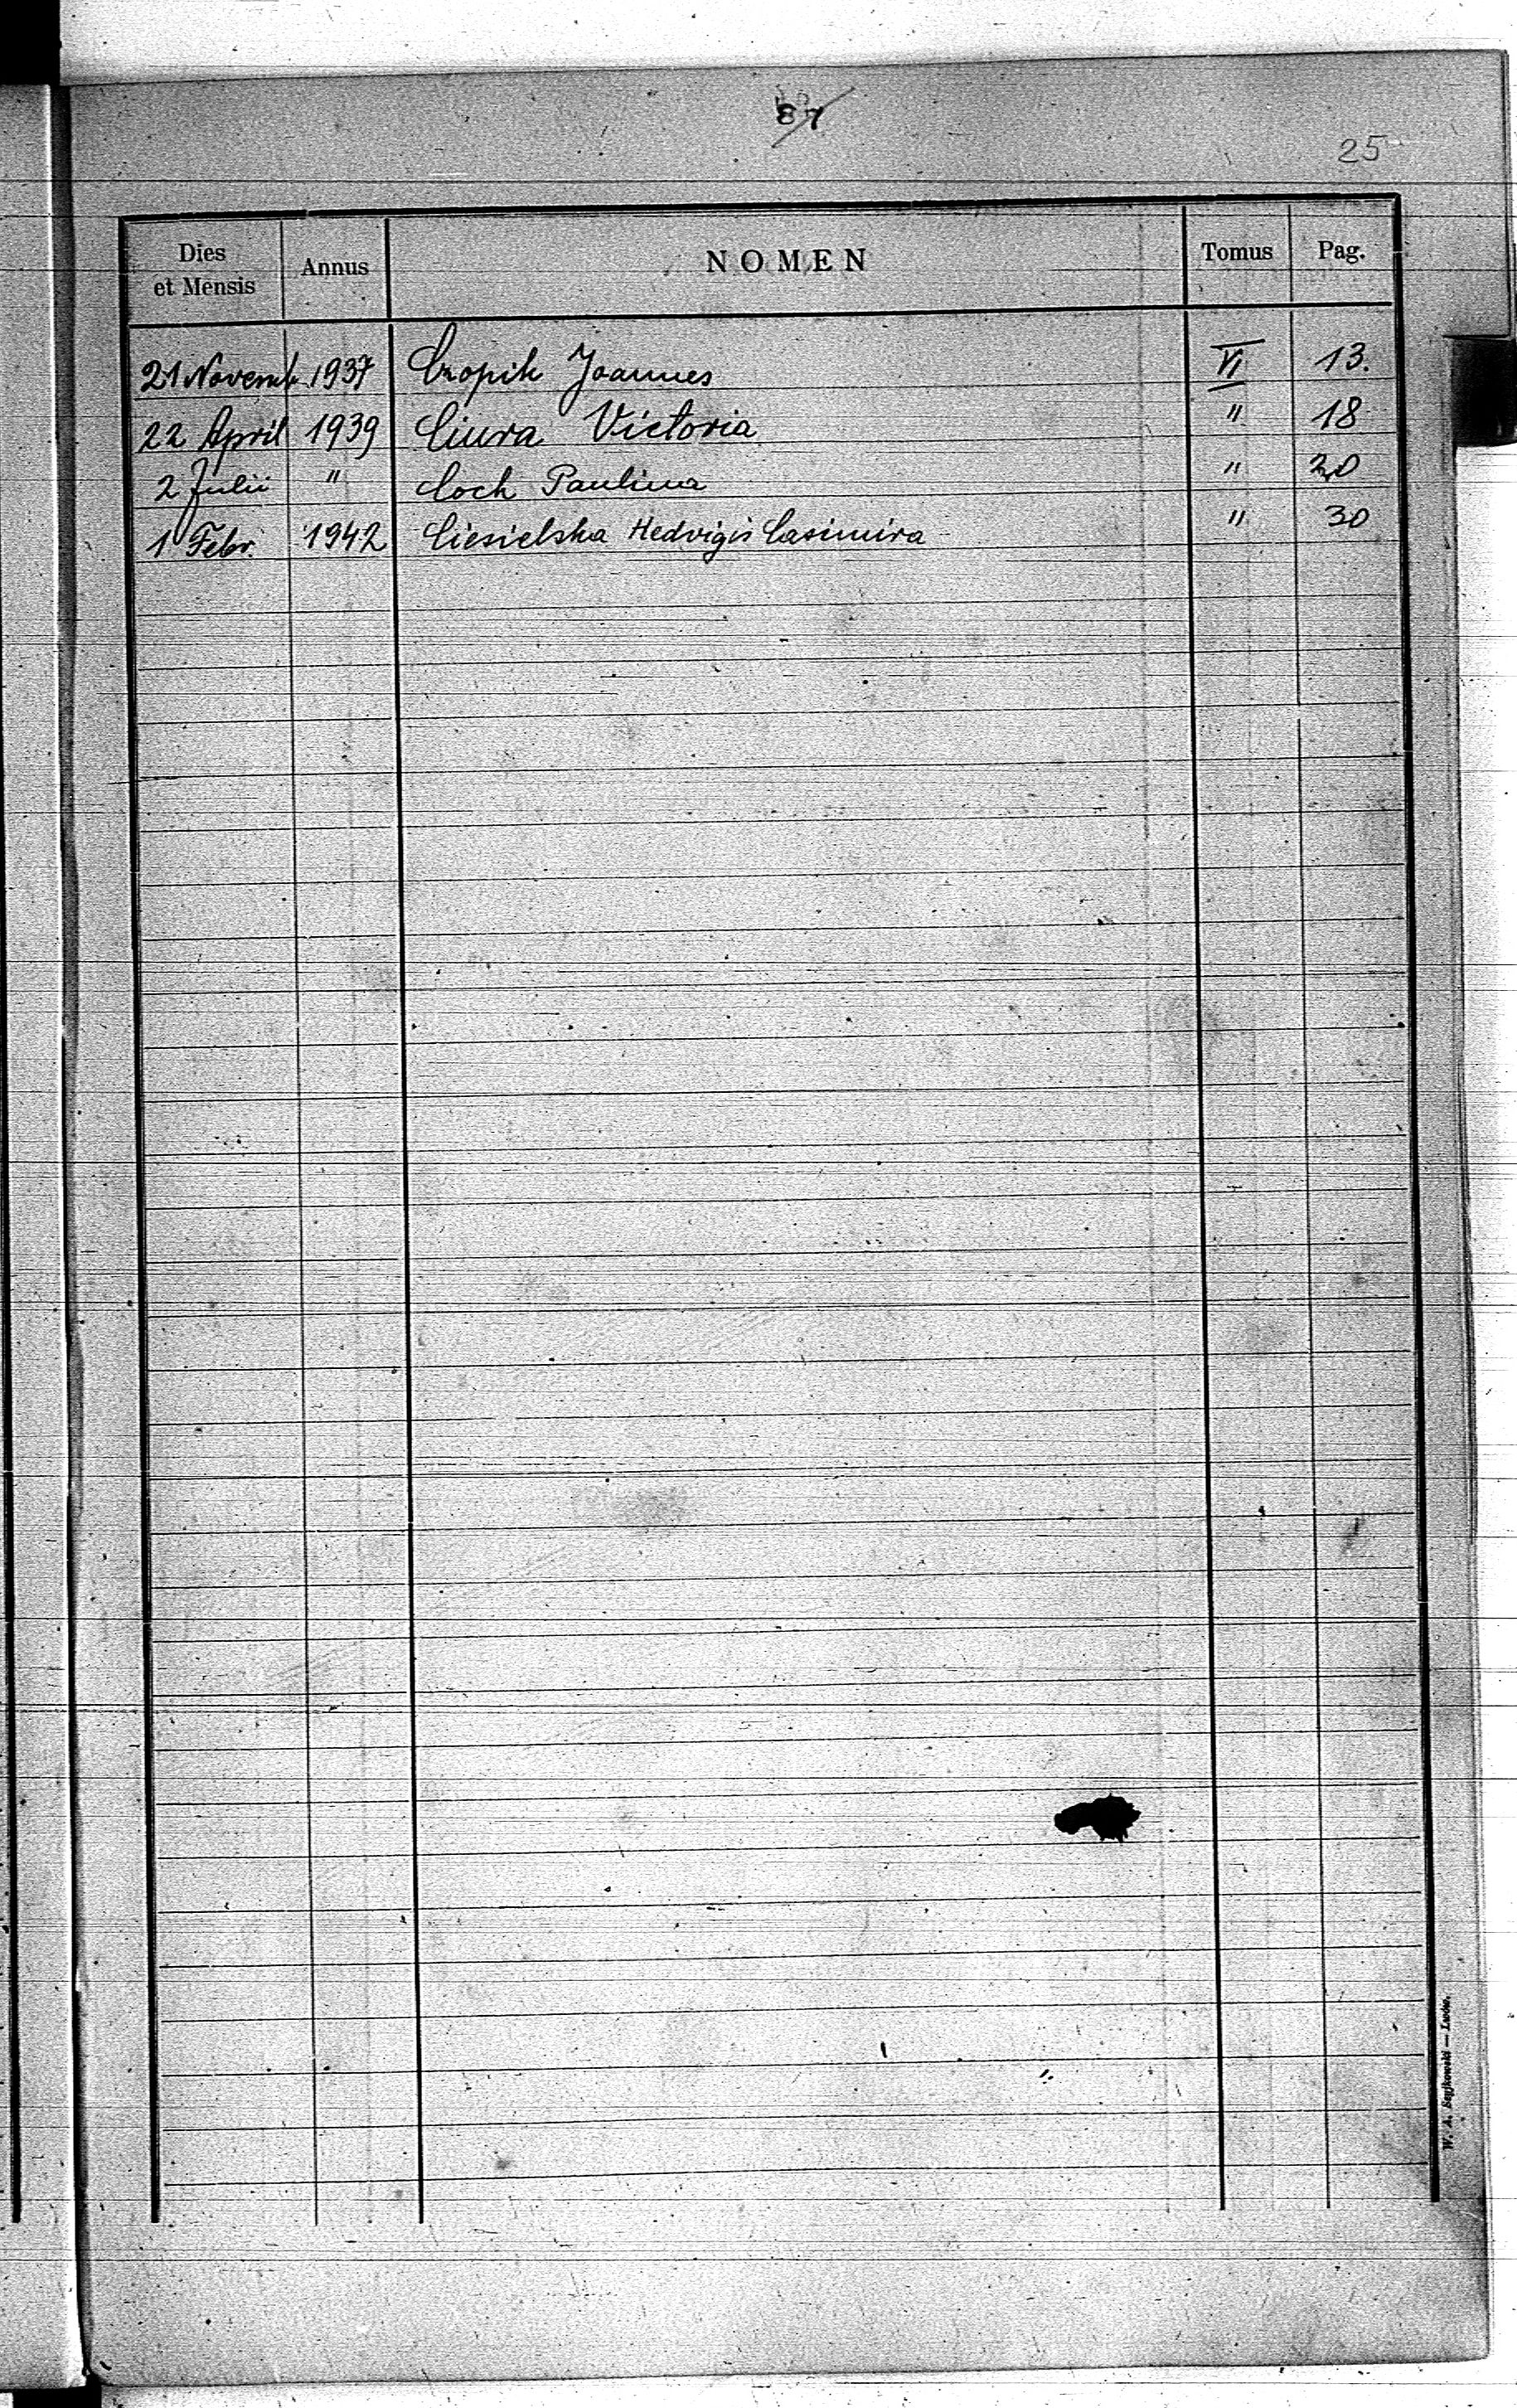 87
25
Dies et Mensis Annus NOMEN Tomus Pag.
21 Novemb. 1937 Czopik Joannes VI 13.
22 April 1939 Ciura Victoria " 18
2 Julii " Coch Paulina " 20
1 Febr. 1942 Ciesielska Hedvigis Casimira " 30
W. A. — Lwów.